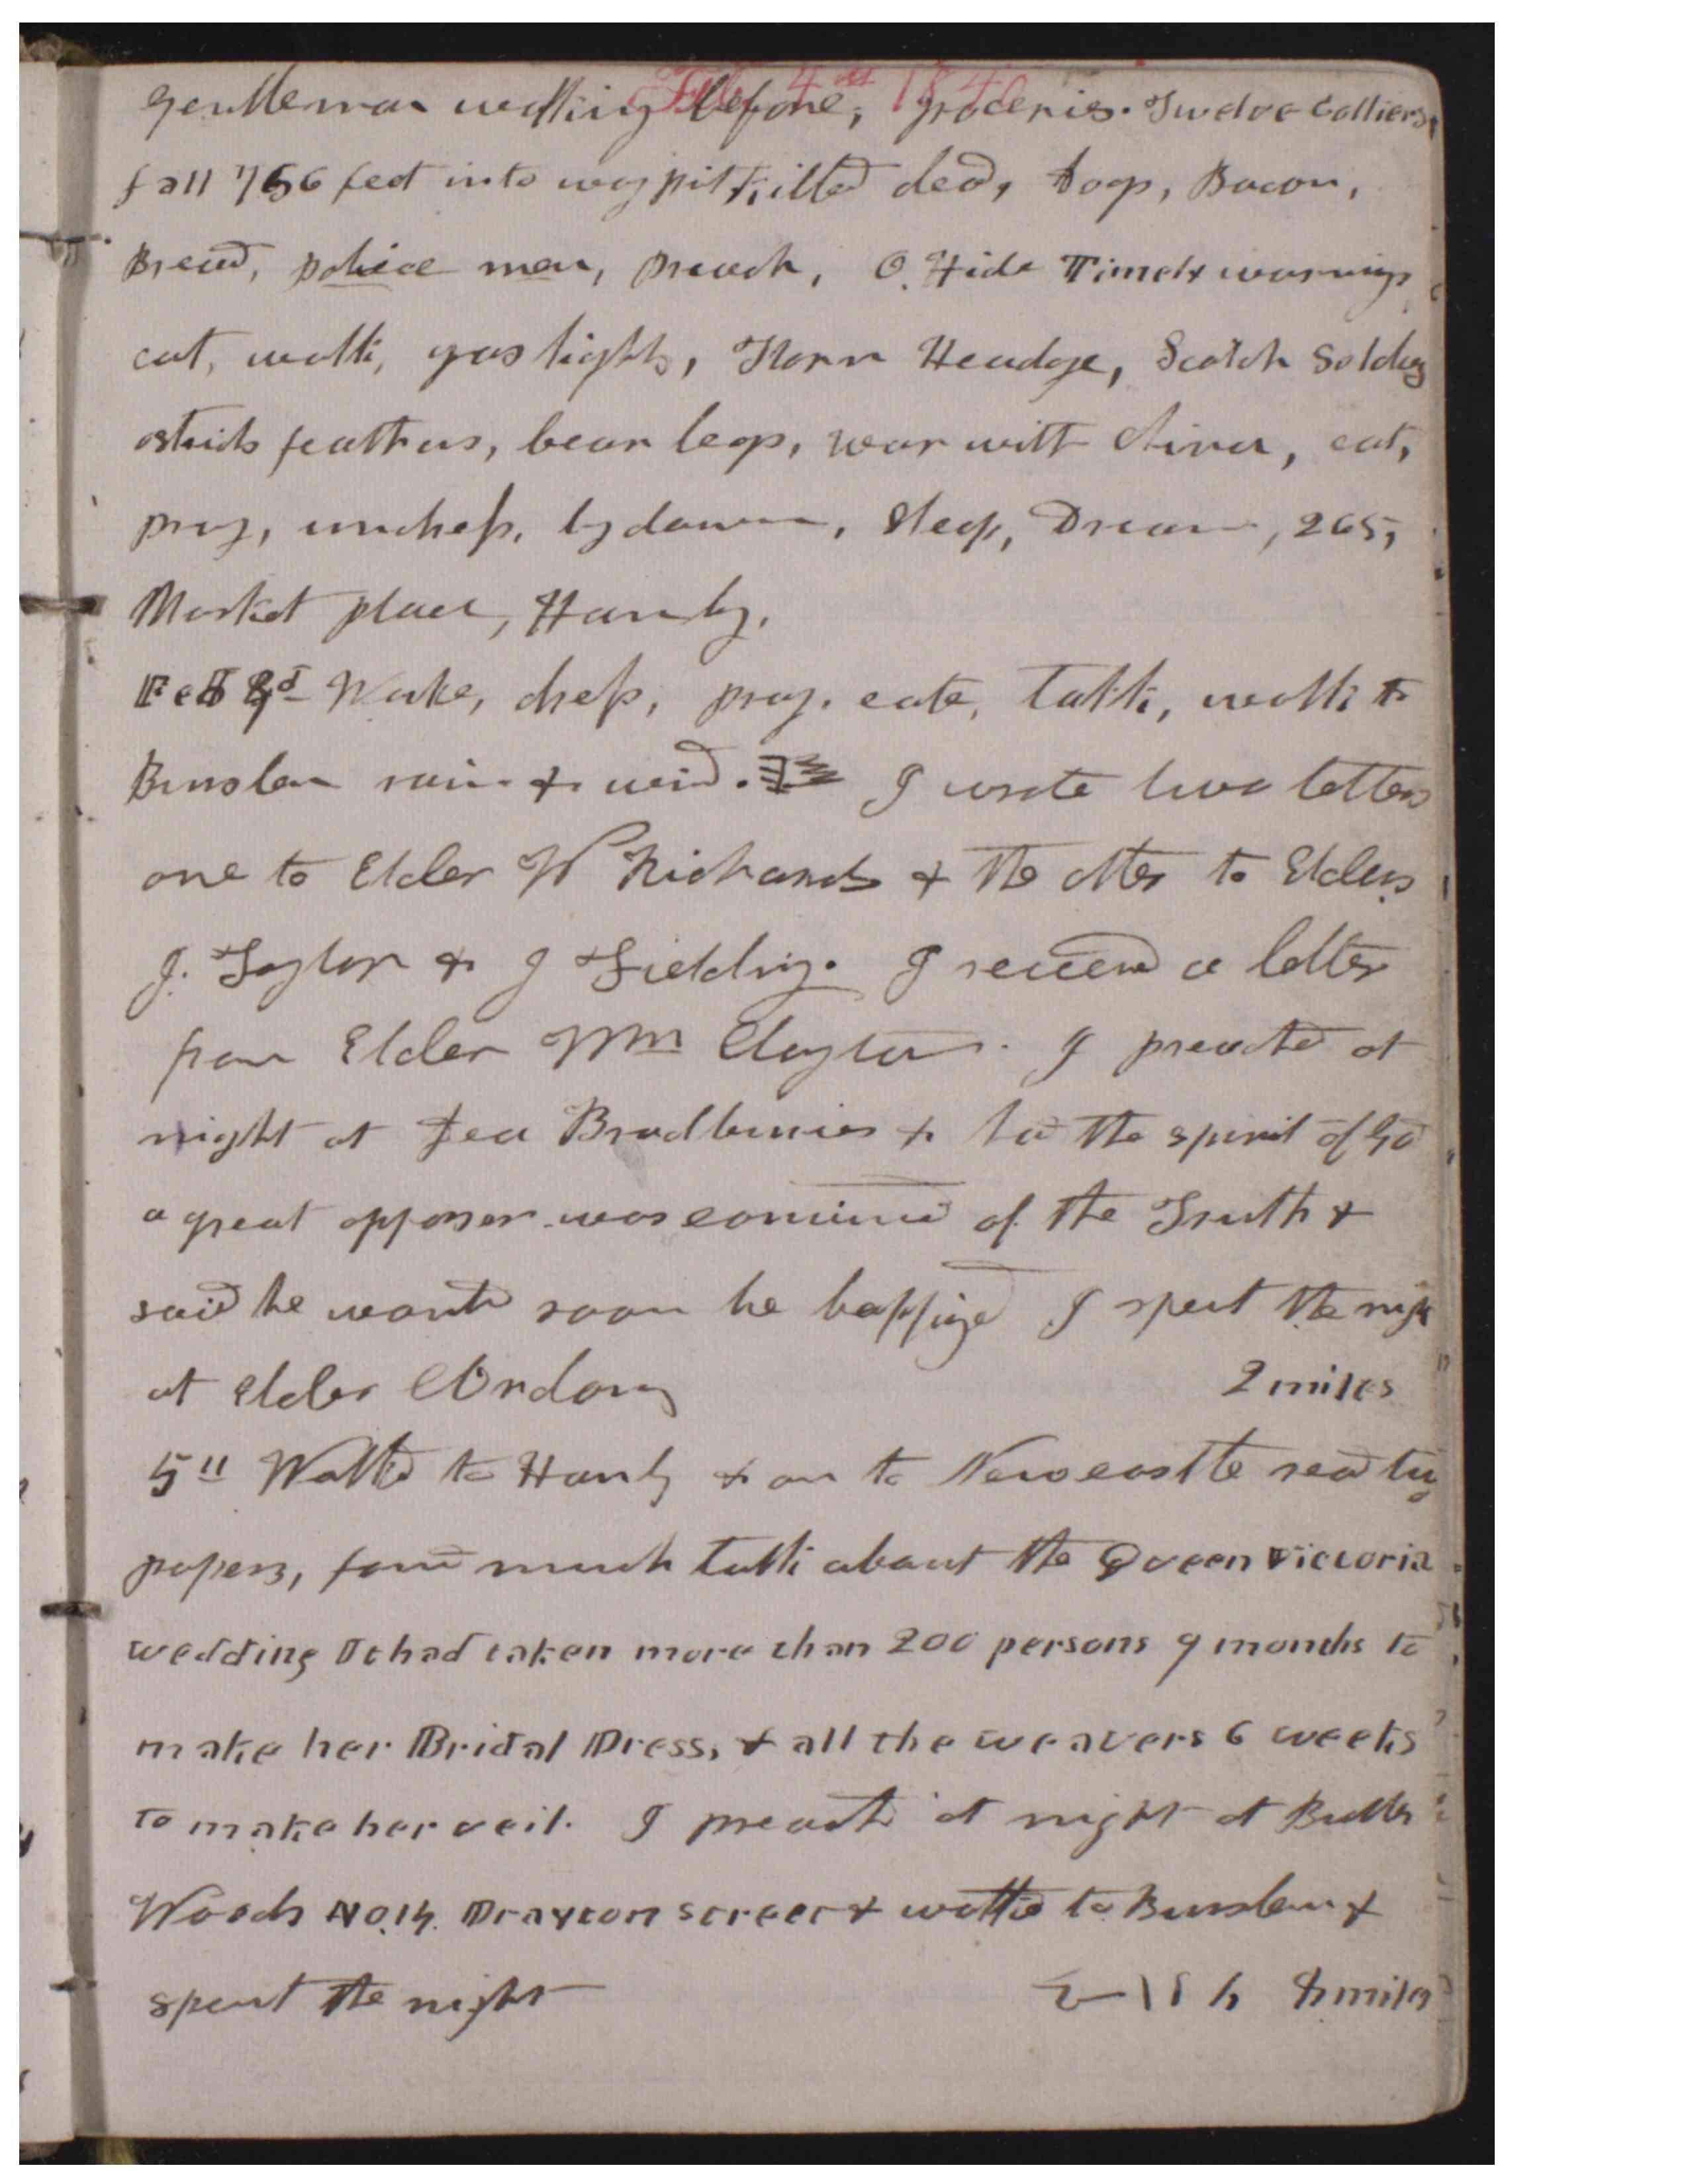 Feb 4th 1840
gentleman walking before, groceries. Twelve Colliers,
fall 756 feet into killed dead, Bacon,
Bread, police men, preach, O. Hide Timely warning
eat, walk, gas lights, Headge, Scotch Soldiers
feathers, bear legs, war with China, eat,
pray, undress, ly down, Sleep, Dream, 265,
Market place, Hanly.
Wake, dress, pray, eate, talk, walk to
Burslem rain & wind. I wrote two letters
one to Elder W Richards & the other to Elders
J. Taylor & J Fielding. I received a letter
from Elder Wm Clayton. I preached at
night at Bradburies & had the spirit of God
a great opposer was convinced of the Truth &
said he would soon be baptized I spent the night
at Elder Cordons 2 miles
5th Walked to Hanly & on to Newcastle read the
papers, found much talk about the Queen Victoria
wedding It had taken more than 200 persons 9 months to
make her Bridal Dress, & all the weavers 6 weeks
to make her veil. I preachd at night at Brother
Woods No 14. Drayton Street & walked to Burslem &
spent the night miles